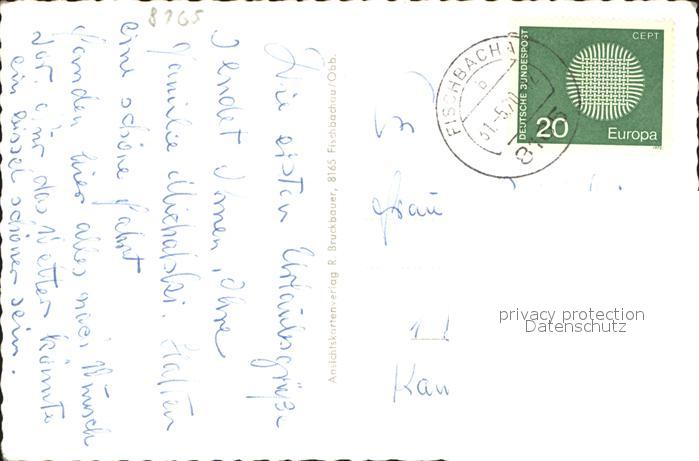 8165
Die ersten Urlaubsgrüße
sendet Ihnen, Ihre
Familie Michalski. Hatten
eine schöne Fahrt
fanden hier alles nach Wunsch
vor. Nur das Wetter könnte
ein bissel schöner sein.
Ansichtskartenverlag R. Bruckbauer, 8165 Fischbachau/Obb.
FISCHBACHAU
b
31.-5.70
8165
DEUTSCHE BUNDESPOST
CEPT
20
Europa
Frau
Kau
privacy protection
Datenschutz